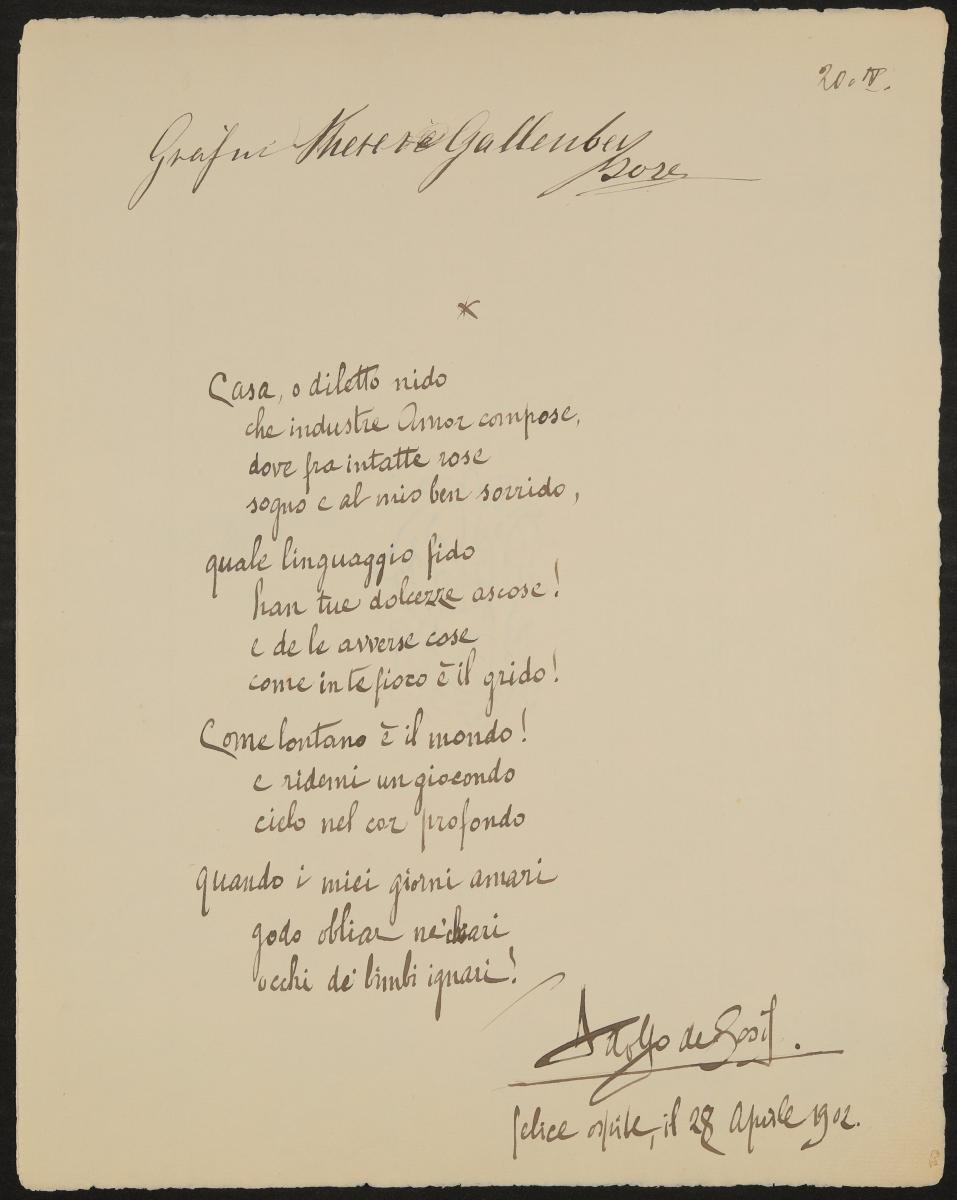 20. IV.
Gräfin Therese Gallenberg
Boze
*
Casa, o diletto nido
che industre Amor compose,
dove fra intatte rose
sogno e al mio ben sorrido,
quale linguaggio fido
han tue dolcezze ascose!
e de le avverse cose
come in te fioco è il grido!
Come lontano è il mondo!
e ridemi un giocondo
cielo nel cor profondo
quando i miei giorni amari
godo obliar ne' chiari
occhi de' bimbi ignari!
Adolfo de
felice ospite, il 28 Aprile 1902.